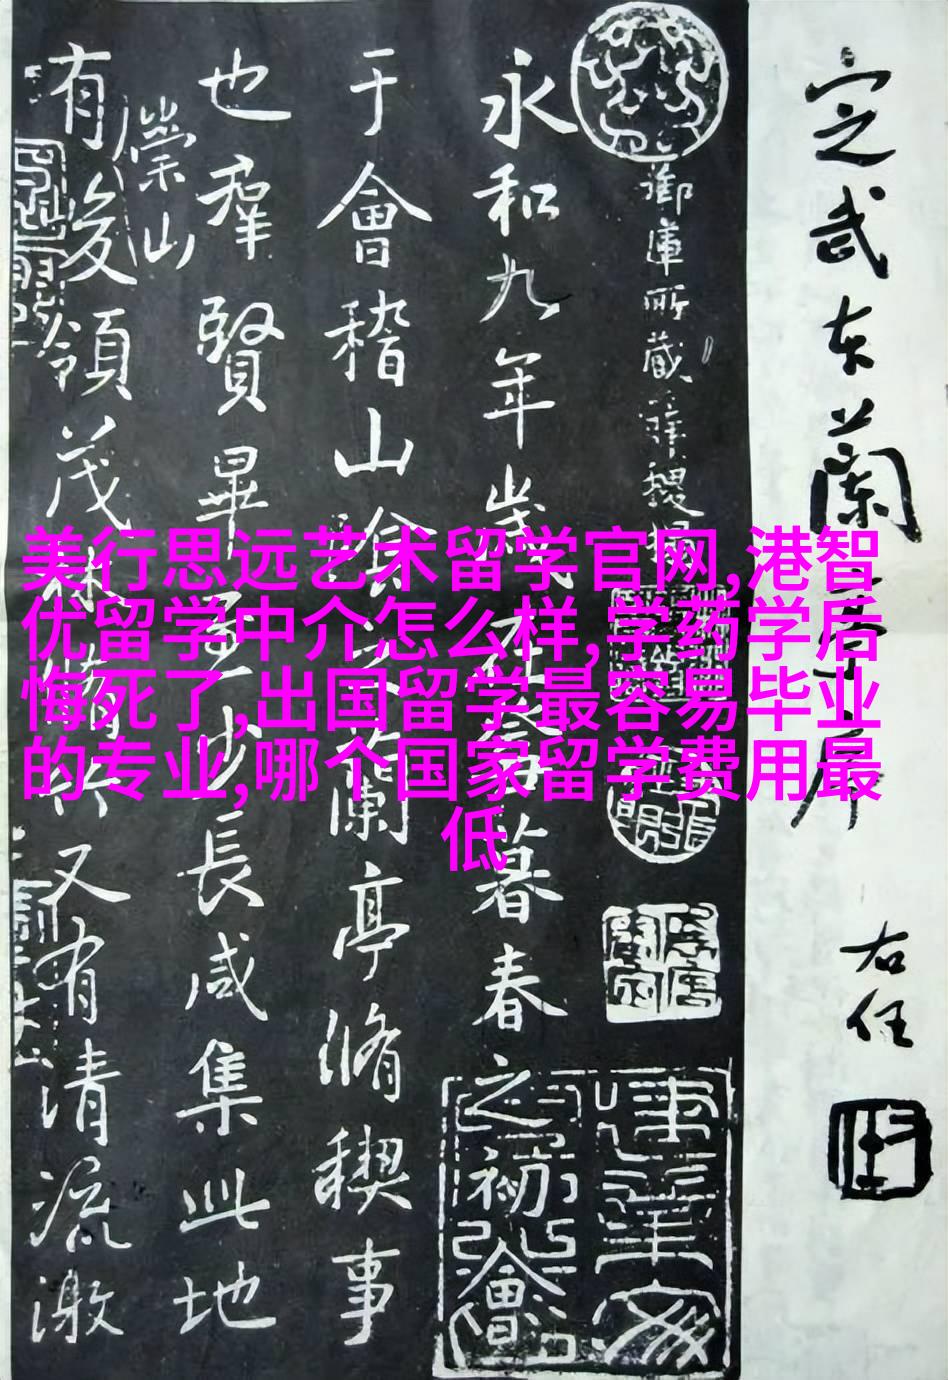 定武本蘭亭序
右任
御庫所藏薛稷
永和九年歲在癸丑暮春之初會
于會稽山陰之蘭亭脩稧事
也羣賢畢至少長咸集此地
崇山
有峻領茂林脩竹又有清流激
美行思远艺术留学官网,港智
优留学中介怎么样,学药学后
悔死了,出国留学最容易毕业
的专业,哪个国家留学费用最
低